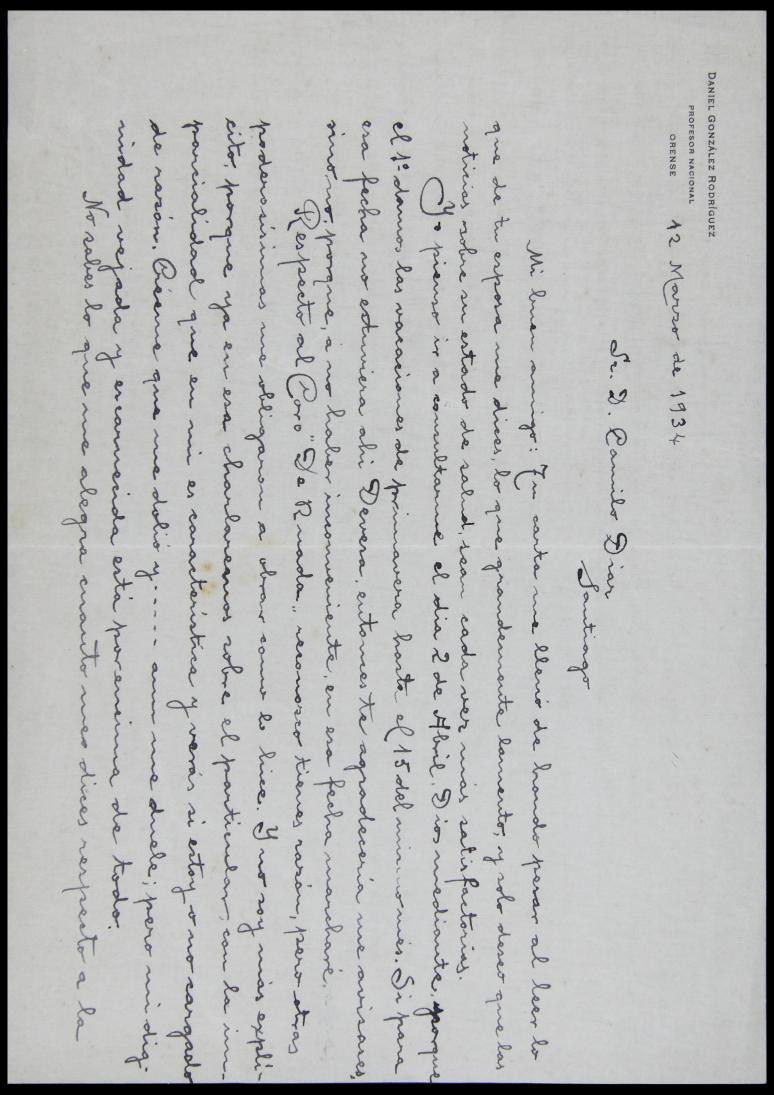 DANIEL GONZÁLEZ RODRÍGUEZ
PROFESOR NACIONAL
ORENSE
12 Marzo de 1934
Sr. D. Camilo Diaz
Santiago
Mi buen amigo: Tu carta me llenó de hondo pesar al leer lo
que de tu esposa me dices, lo que grandemente lamento, y solo deseo que las
noticias sobre su estado de salud, sean cada vez más satisfactorias.
Yo pienso ir a consultarme el dia 2 de Abril. Dios mediante, porque
el 1º damos las vacaciones de primavera hasta el 15 del mismo mes. Si para
esa fecha no estuviera ahi Devesa, entonces te agradeceria me avisares,
sino, no, porque, a no haber inconveniente, en esa fecha marcharé.
Respecto al Coro "De Ruada", reconozco tienes razón, pero otras
poderosisimas me obligaron a obrar como lo hice. Y no soy más expli-
cito, porque ya en esa charlaremos sobre el particular, con la im-
parcialidad que en mi es caracteristica y verás si estoy o no cargado
de razón. Créeme que me dolió y.... aun me duele; pero mi dig-
nidad vejada y escarnecida está por encima de todo.
No sabes lo que me alegra cuanto me dices respecto a la